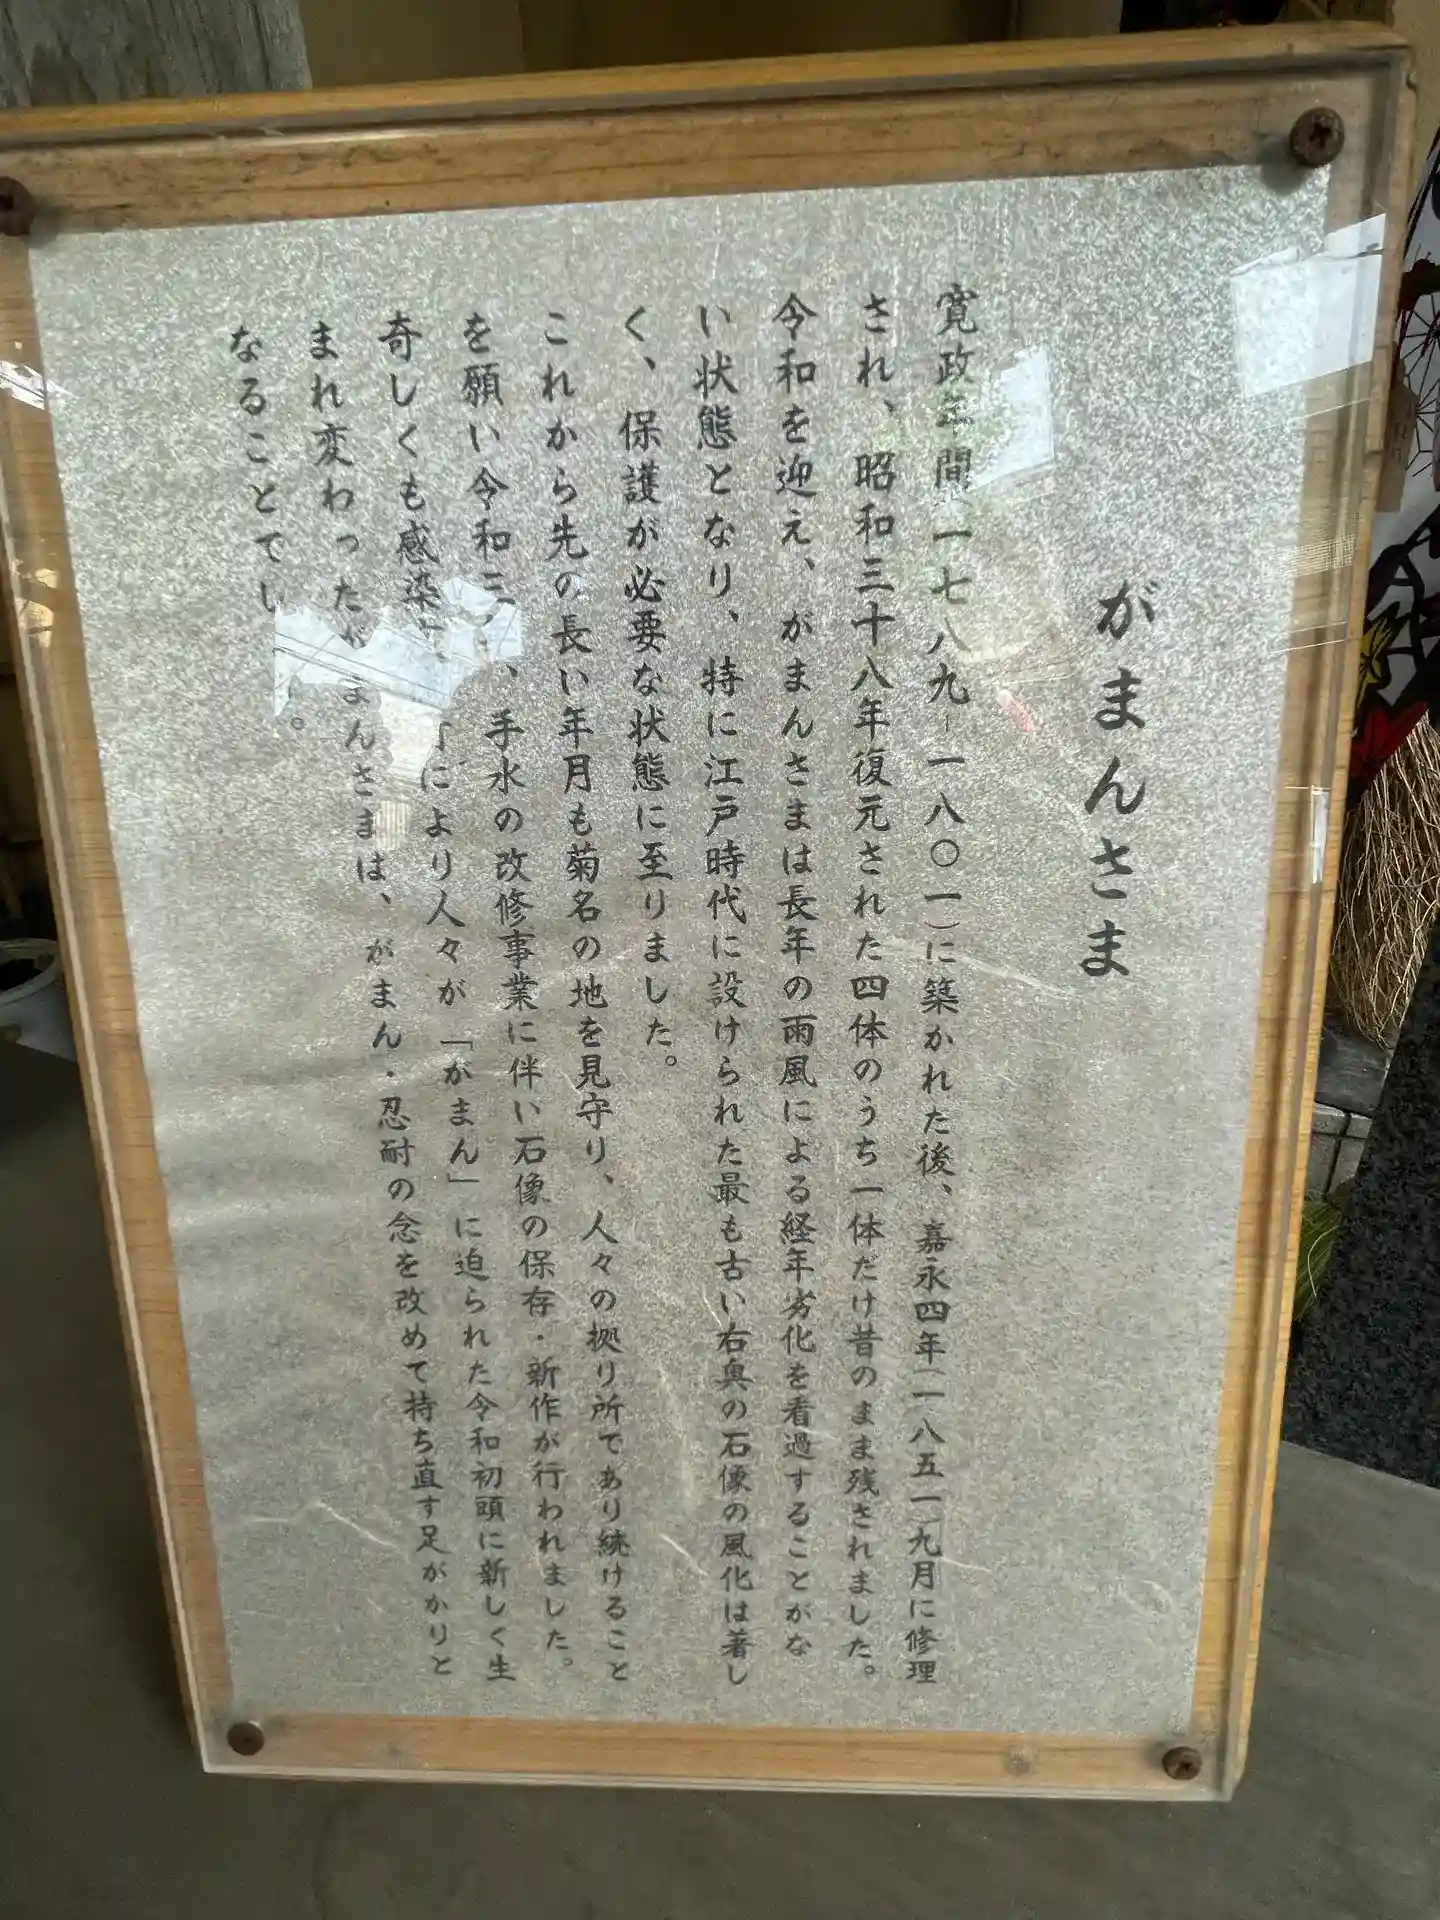 がまんさま
寛政年間一七八九-一八〇一)に築かれた後、嘉永四年(一八五一)九月に修理
され、昭和三十八年復元された四体のうち一体だけ昔のまま残されました。
令和を迎え、がまんさまは長年の雨風による経年劣化を看過することがな
い状態となり、特に江戸時代に設けられた最も古い右奥の石像の風化は著し
く、保護が必要な状態に至りました。
これから先の長い年月も菊名の地を見守り、人々の拠り所であり続けること
を願い令和三、手水の改修事業に伴い石像の保存・新作が行われました。
奇しくも感染により人々が「がまん」に迫られた令和初頭に新しく生
まれ変わったがまんさまは、がまん・忍耐の念を改めて持ち直す足がかりと
なることでし。